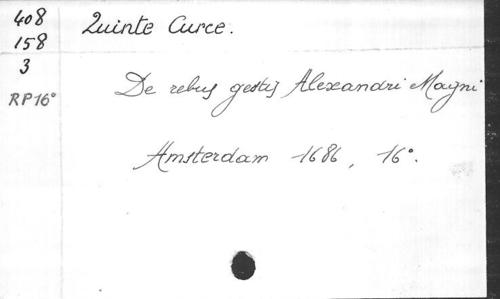 408
158
3
RP16°
Quinte Curce.
De rebus gestis Alexandri Magni
Amsterdam 1686, 16°.